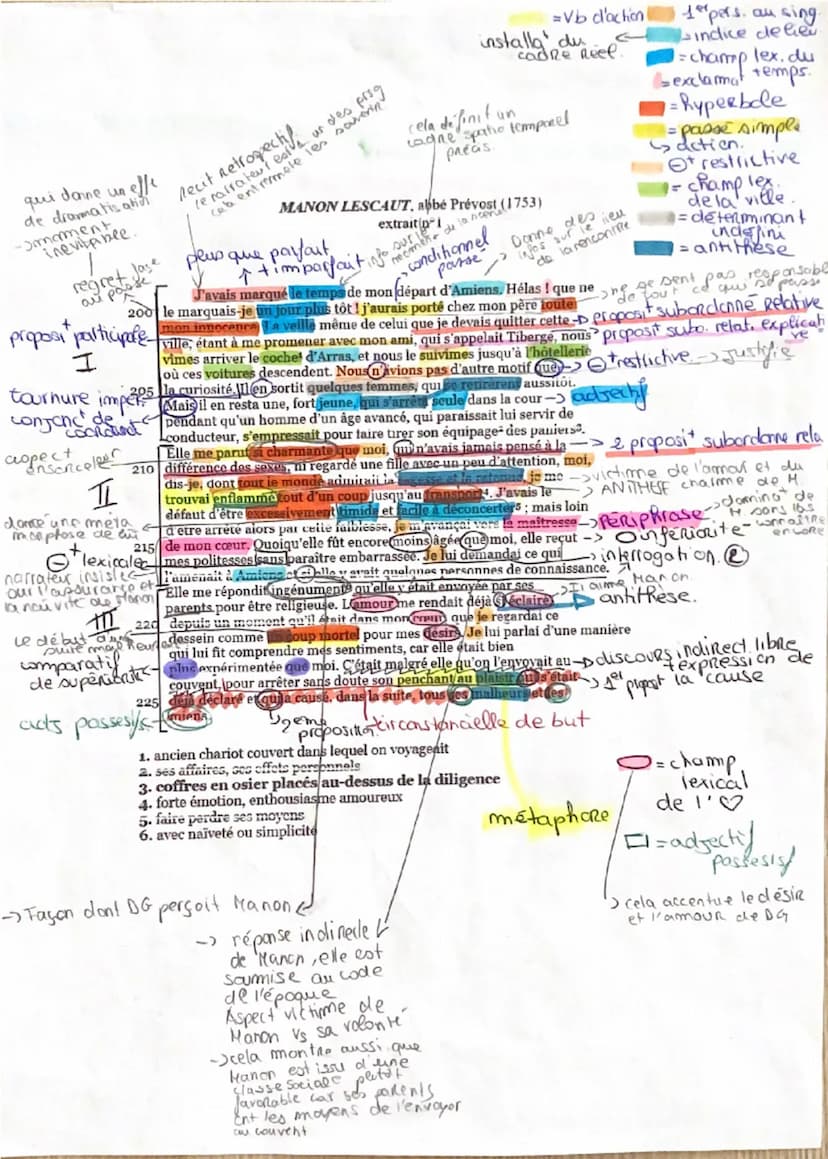 =Vb d'action
1er pers. au sing.
installa° du
cadre Réel.
=indice de lieu
=champ lex. du
temps.
=exclamat°
=Hyperbole
=passé simple
↳ d'action.
⊖+ restrictive
=champ lex
de la ville.
=déterminant
indéfini
=antithèse
cela définit un
cadre spatio temporel
précis.
récit Rétrospectif
qui donne un effet
de dramatisation
→moment
inévitable.
MANON LESCAUT, abbé Prévost (1753)
extrait n°1
plus que parfait
↑ + imparfait
conditionnel
passé
Donne des
infos sur le lieu
de la rencontre
regret face
au passé
J'avais marqué le temps de mon départ d'Amiens. Hélas ! que ne
200 le marquais-je un jour plus tôt ! j'aurais porté chez mon père toute
mon innocence. La veille même de celui que je devais quitter cette
ville, étant à me promener avec mon ami, qui s'appelait Tiberge, nous
vîmes arriver le coche¹ d'Arras, et nous le suivîmes jusqu'à l'hôtellerie
où ces voitures descendent. Nous n'avions pas d'autre motif que
205 la curiosité. Il en sortit quelques femmes, qui se retirèrent aussitôt.
Mais il en resta une, fort jeune, qui s'arrêta seule dans la cour
pendant qu'un homme d'un âge avancé, qui paraissait lui servir de
conducteur, s'empressait pour faire tirer son équipage² des paniers³.
Elle me parut si charmante que moi, qui n'avais jamais pensé à la
210 différence des sexes, ni regardé une fille avec un peu d'attention, moi,
dis-je, dont tout le monde admirait la sagesse et la retenue, je me
trouvai enflammé tout d'un coup jusqu'au transport⁴. J'avais le
défaut d'être excessivement timide et facile à déconcerter⁵ ; mais loin
d'être arrêté alors par cette faiblesse, je m'avançai vers la maîtresse
215 de mon cœur. Quoiqu'elle fût encore moins âgée que moi, elle reçut
mes politesses sans paraître embarrassée. Je lui demandai ce qui
l'amenait à Amiens et si elle y avait quelques personnes de connaissance.
Elle me répondit ingénument⁶ qu'elle y était envoyée par ses
parents pour être religieuse. L'amour me rendait déjà si éclairé
220 depuis un moment qu'il était dans mon cœur, que je regardai ce
dessein comme un coup mortel pour mes désirs. Je lui parlai d'une manière
qui lui fit comprendre mes sentiments, car elle était bien
plus expérimentée que moi. C'était malgré elle qu'on l'envoyait au
couvent, pour arrêter sans doute son penchant au plaisir qui s'était
225 déjà déclaré et qui a causé, dans la suite, tous ses malheurs et les
miens.
→ne se sent pas responsable
de tout ce qui se passe
→proposit° subordonné Relative
proposit° subo. relat. explicative
→⊖+restrictive → justifie
→ adjectif
→ 2 proposit° subordonne rela
→victime de l'amour et du
charme de M.
ANTITHESE
→PÉRIPHRASE
→ ⊖inferiorité
→interrogation.
Il aime Manon
antithèse.
→discours indirect libre
+expression de
la cause
→ 1er proposit
proposit° participale
I
tournure imper.
conjonc° de
coordinat
aspect
ensorceleur
II
donne une méta
morphose de lui
⊖+ lexicale
narrateur insiste
sur l'assurance et
la naïvité de Manon
III
comparatif
de supériorité
adjs possessifs
2ème
proposition
circonstancielle de but
1. ancien chariot couvert dans lequel on voyageait
2. ses affaires, ses effets personnels
3. coffres en osier placés au-dessus de la diligence
4. forte émotion, enthousiasme amoureux
5. faire perdre ses moyens
6. avec naïveté ou simplicité
métaphore
=champ
lexical
de l'♡
=adjectif
possessif
→ cela accentue le désir
et l'amour de DG
→Façon dont DG perçoit Manon
→ réponse indirecte
de Manon, elle est
soumise au code
de l'époque
Aspect victime de
Manon vs sa volonté
→cela montre aussi que
Manon est issu d'une
classe sociale plutôt
favorable car ses parents
ont les moyens de l'envoyer
au couvent